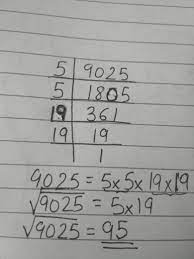 5 | 9025
5 | 1805
19 | 361
19 | 19
| 1
9025 = 5x5x19x19
√9025 = 5x19
√9025 = 95